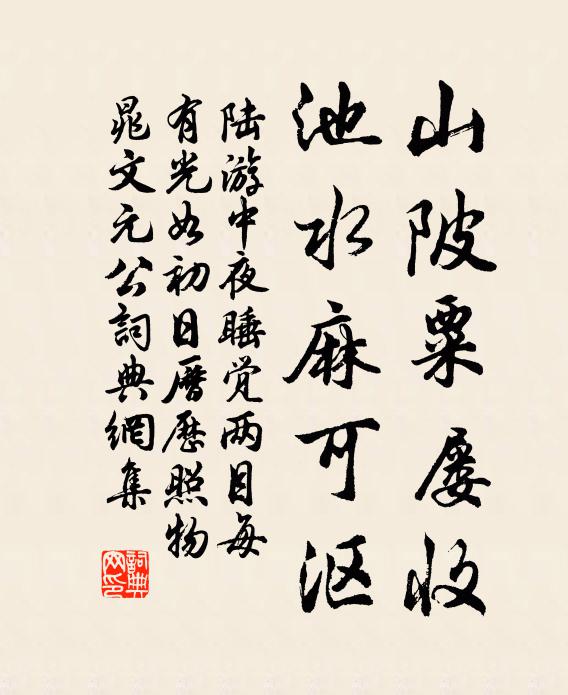 山陂粟屡收
池水麻可沤
陆游中夜睡觉两目每
有光如初日曆歷照物
晁文元公詞典網集
詞典网印